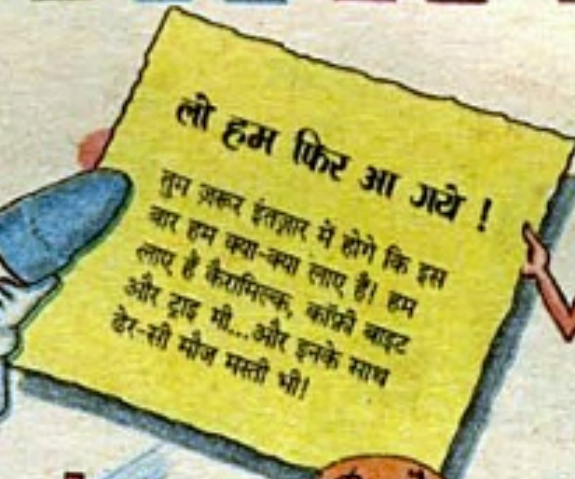 लो हम फिर आ गये !
तुम ज़रूर इंतज़ार में होगे कि इस
बार हम क्या-क्या लाए है! हम
लाए है कैरामिल्क, कॉफ़ी बाइट
और ट्राइ मी...और इनके साथ
ढेर-सी मौज मस्ती भी!